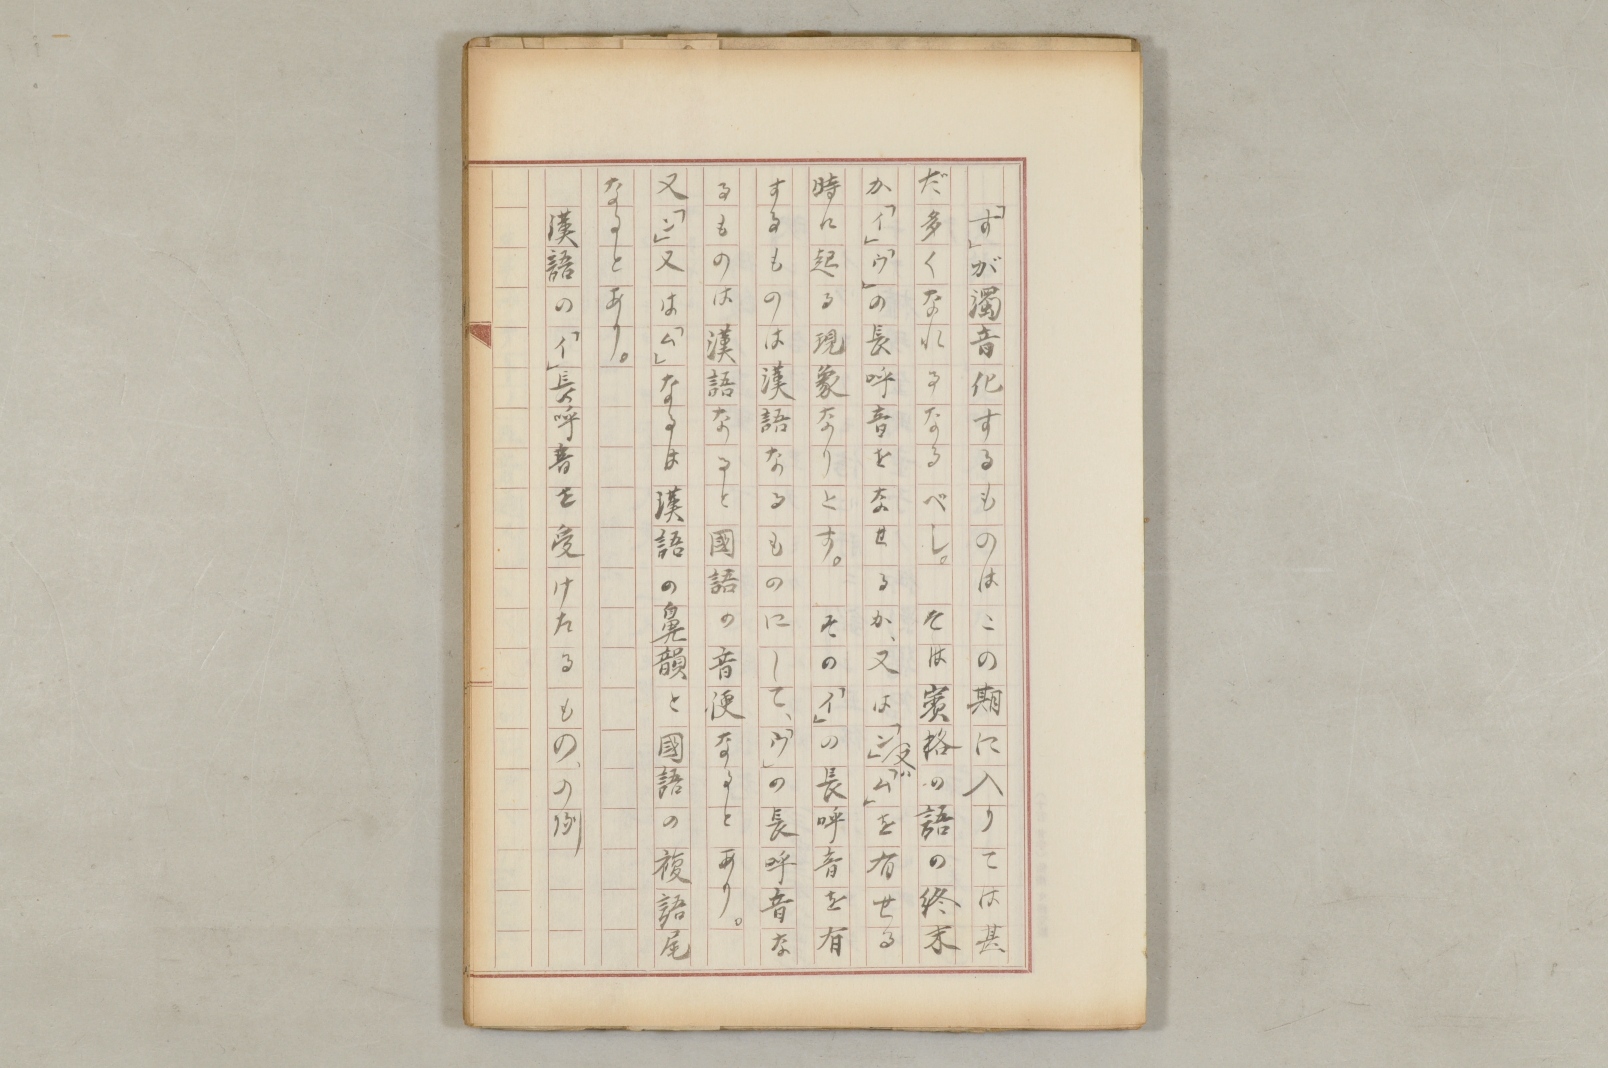 「す」が濁音化するものはこの期に入りては甚
だ多くなれるなるべし。そは賓格の語の終末
か「イ」「ウ」の長呼音をなせるか、又は「ン」又「ム」を有せる
時に起る現象なりとす。その「イ」の長呼音を有
するものは漢語なるものにして、「ウ」の長呼音な
るものは漢語なると國語の音便なるとあり。
又「ン」又は「ム」なるは漢語の鼻韻と國語の複語尾
なるとあり。
漢語の「イ」長呼音を受けたるもの、の例